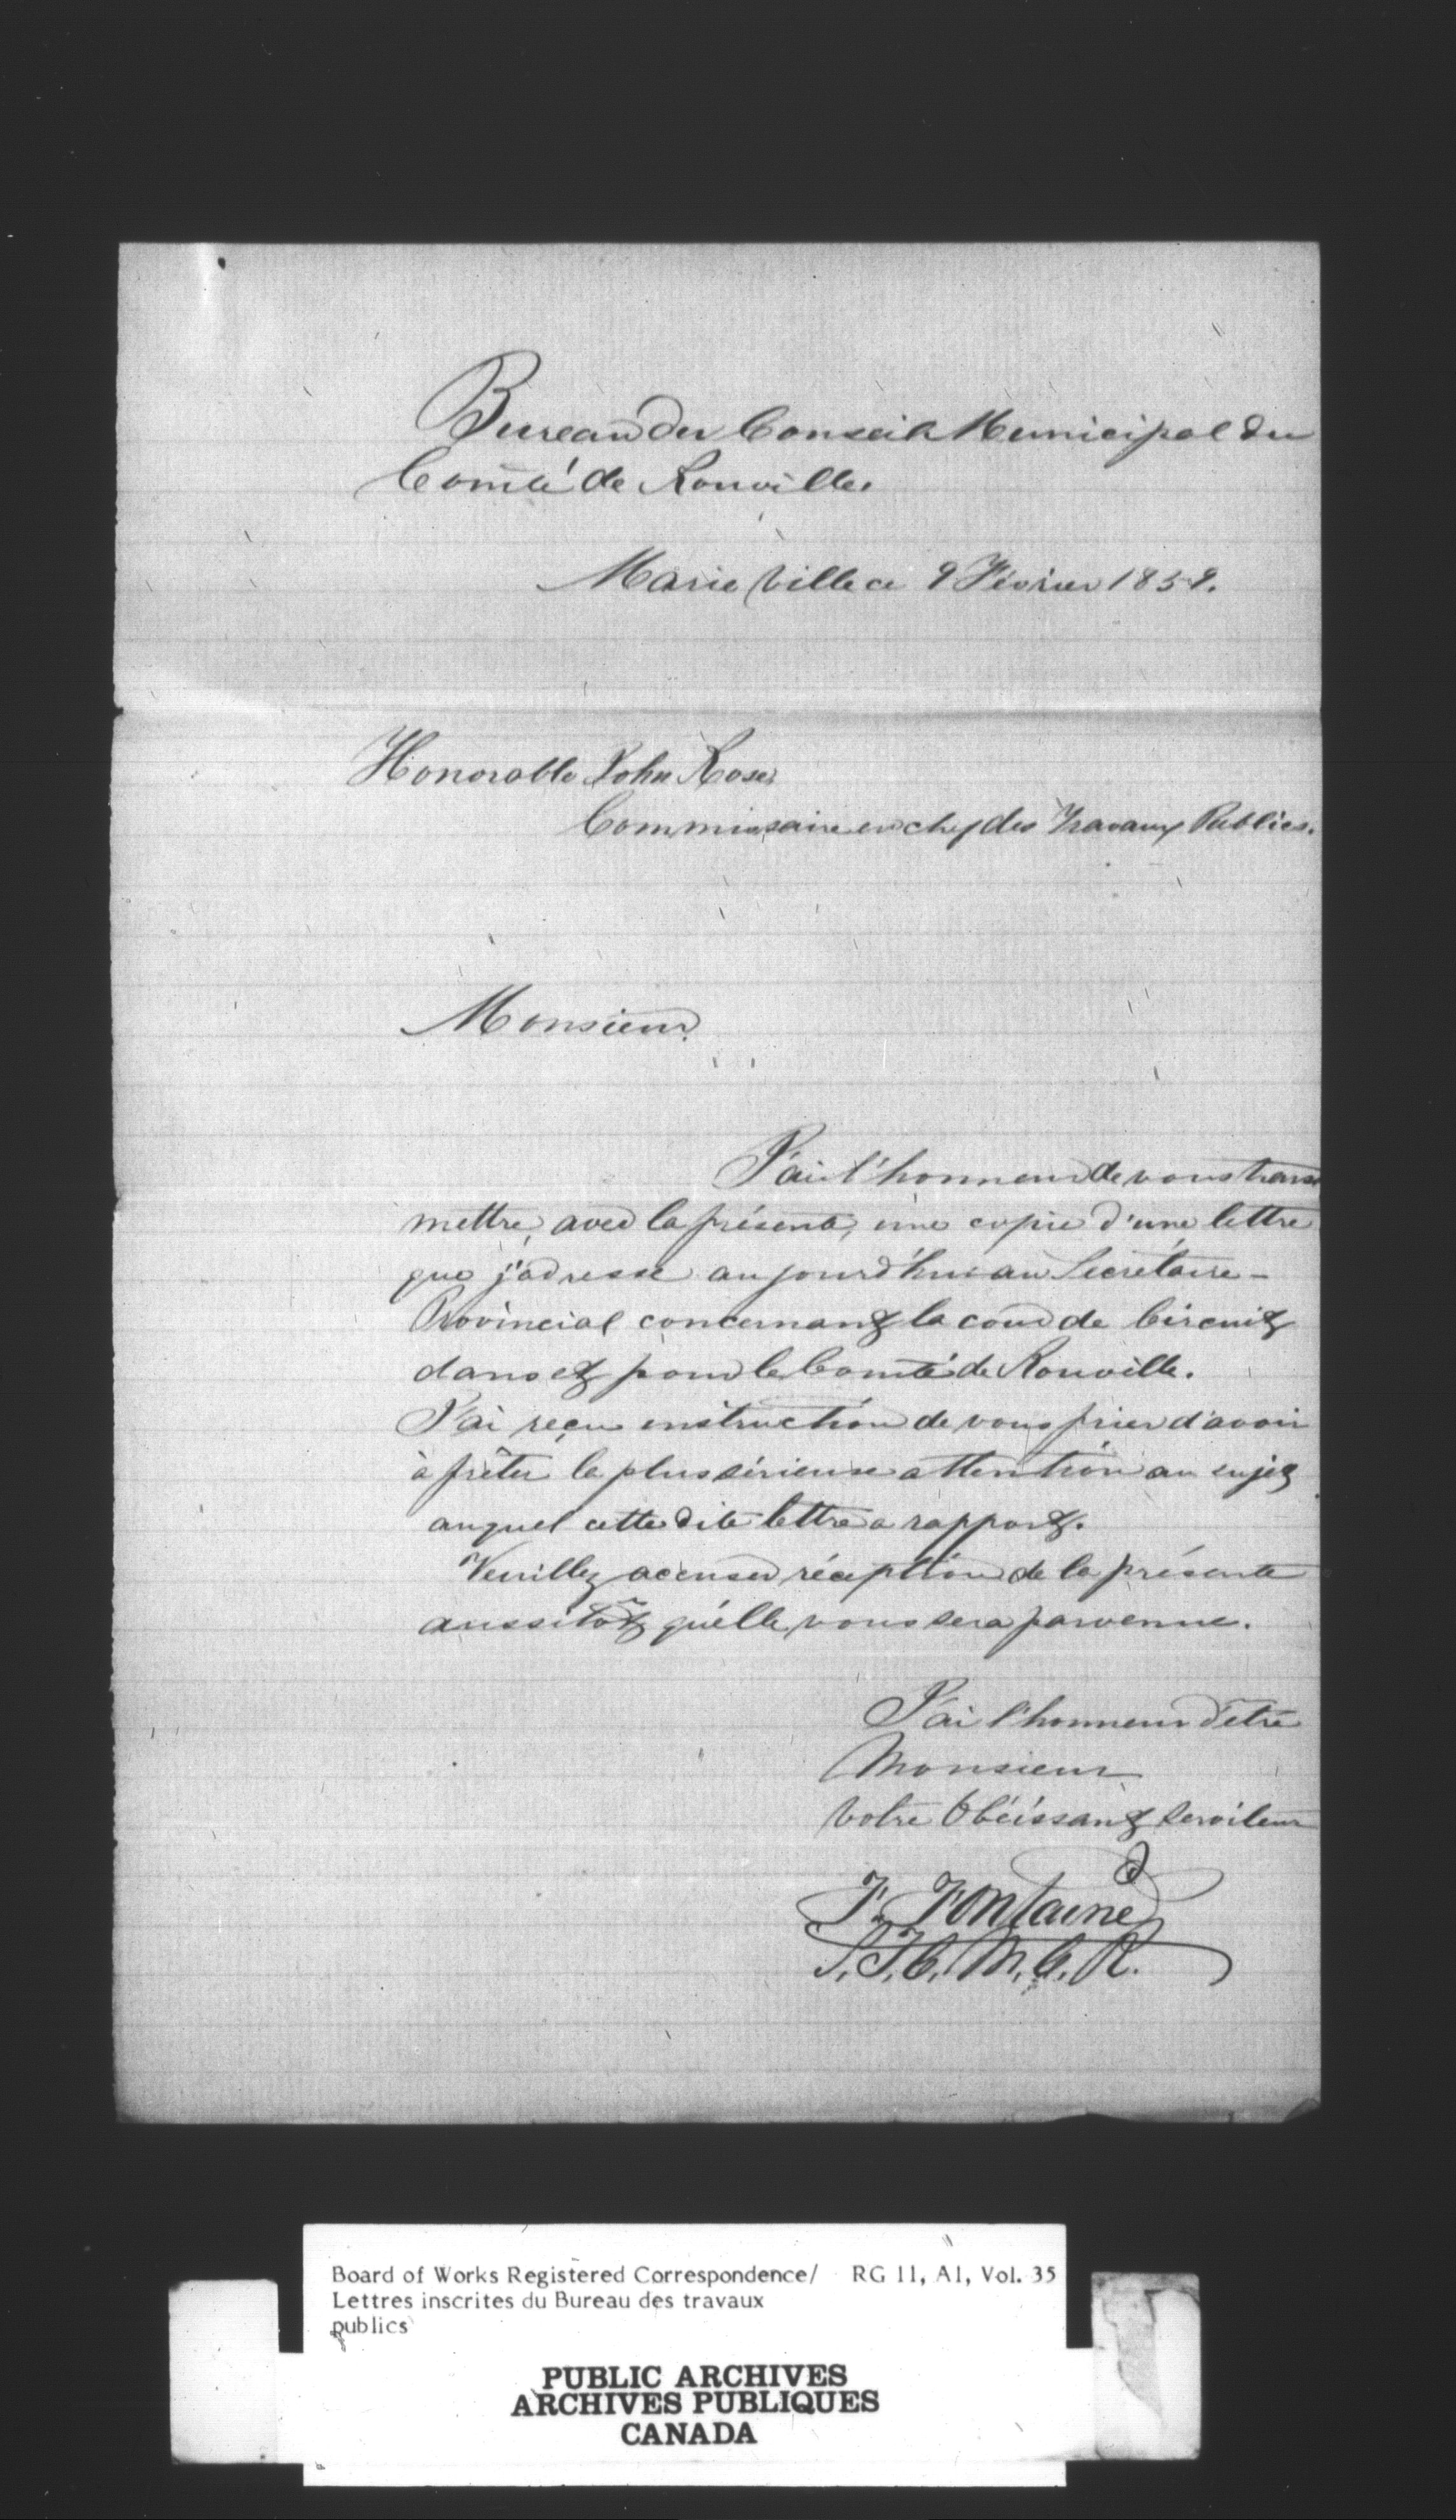 Bureau du Conseil Municipal du
Comté de Rouville.
Marieville ce 9 Février 1859.
Honorable John Rose,
Commissaire en chef des Travaux Publics.
Monsieur,
J'ai l'honneur de vous trans
mettre, avec la présente, une copie d'une lettre
que j'adresse aujourd'hui au Secrétaire-
Provincial concernant la cour de Circuit
dans et pour le Comté de Rouville.
J'ai reçu instruction de vous prier d'avoir
à prêter la plus sérieuse attention au sujet
auquel cette dite lettre a rapport.
Veuillez accuser réception de la présente
aussitôt qu'elle vous sera parvenue.
J'ai l'honneur d'être
Monsieur
Votre Obéissant Serviteur
F. Fontaine
S.T.C.M.C.R.
Board of Works Registered Correspondence/ RG 11, A1, Vol. 35
Lettres inscrites du Bureau des travaux
publics
PUBLIC ARCHIVES
ARCHIVES PUBLIQUES
CANADA